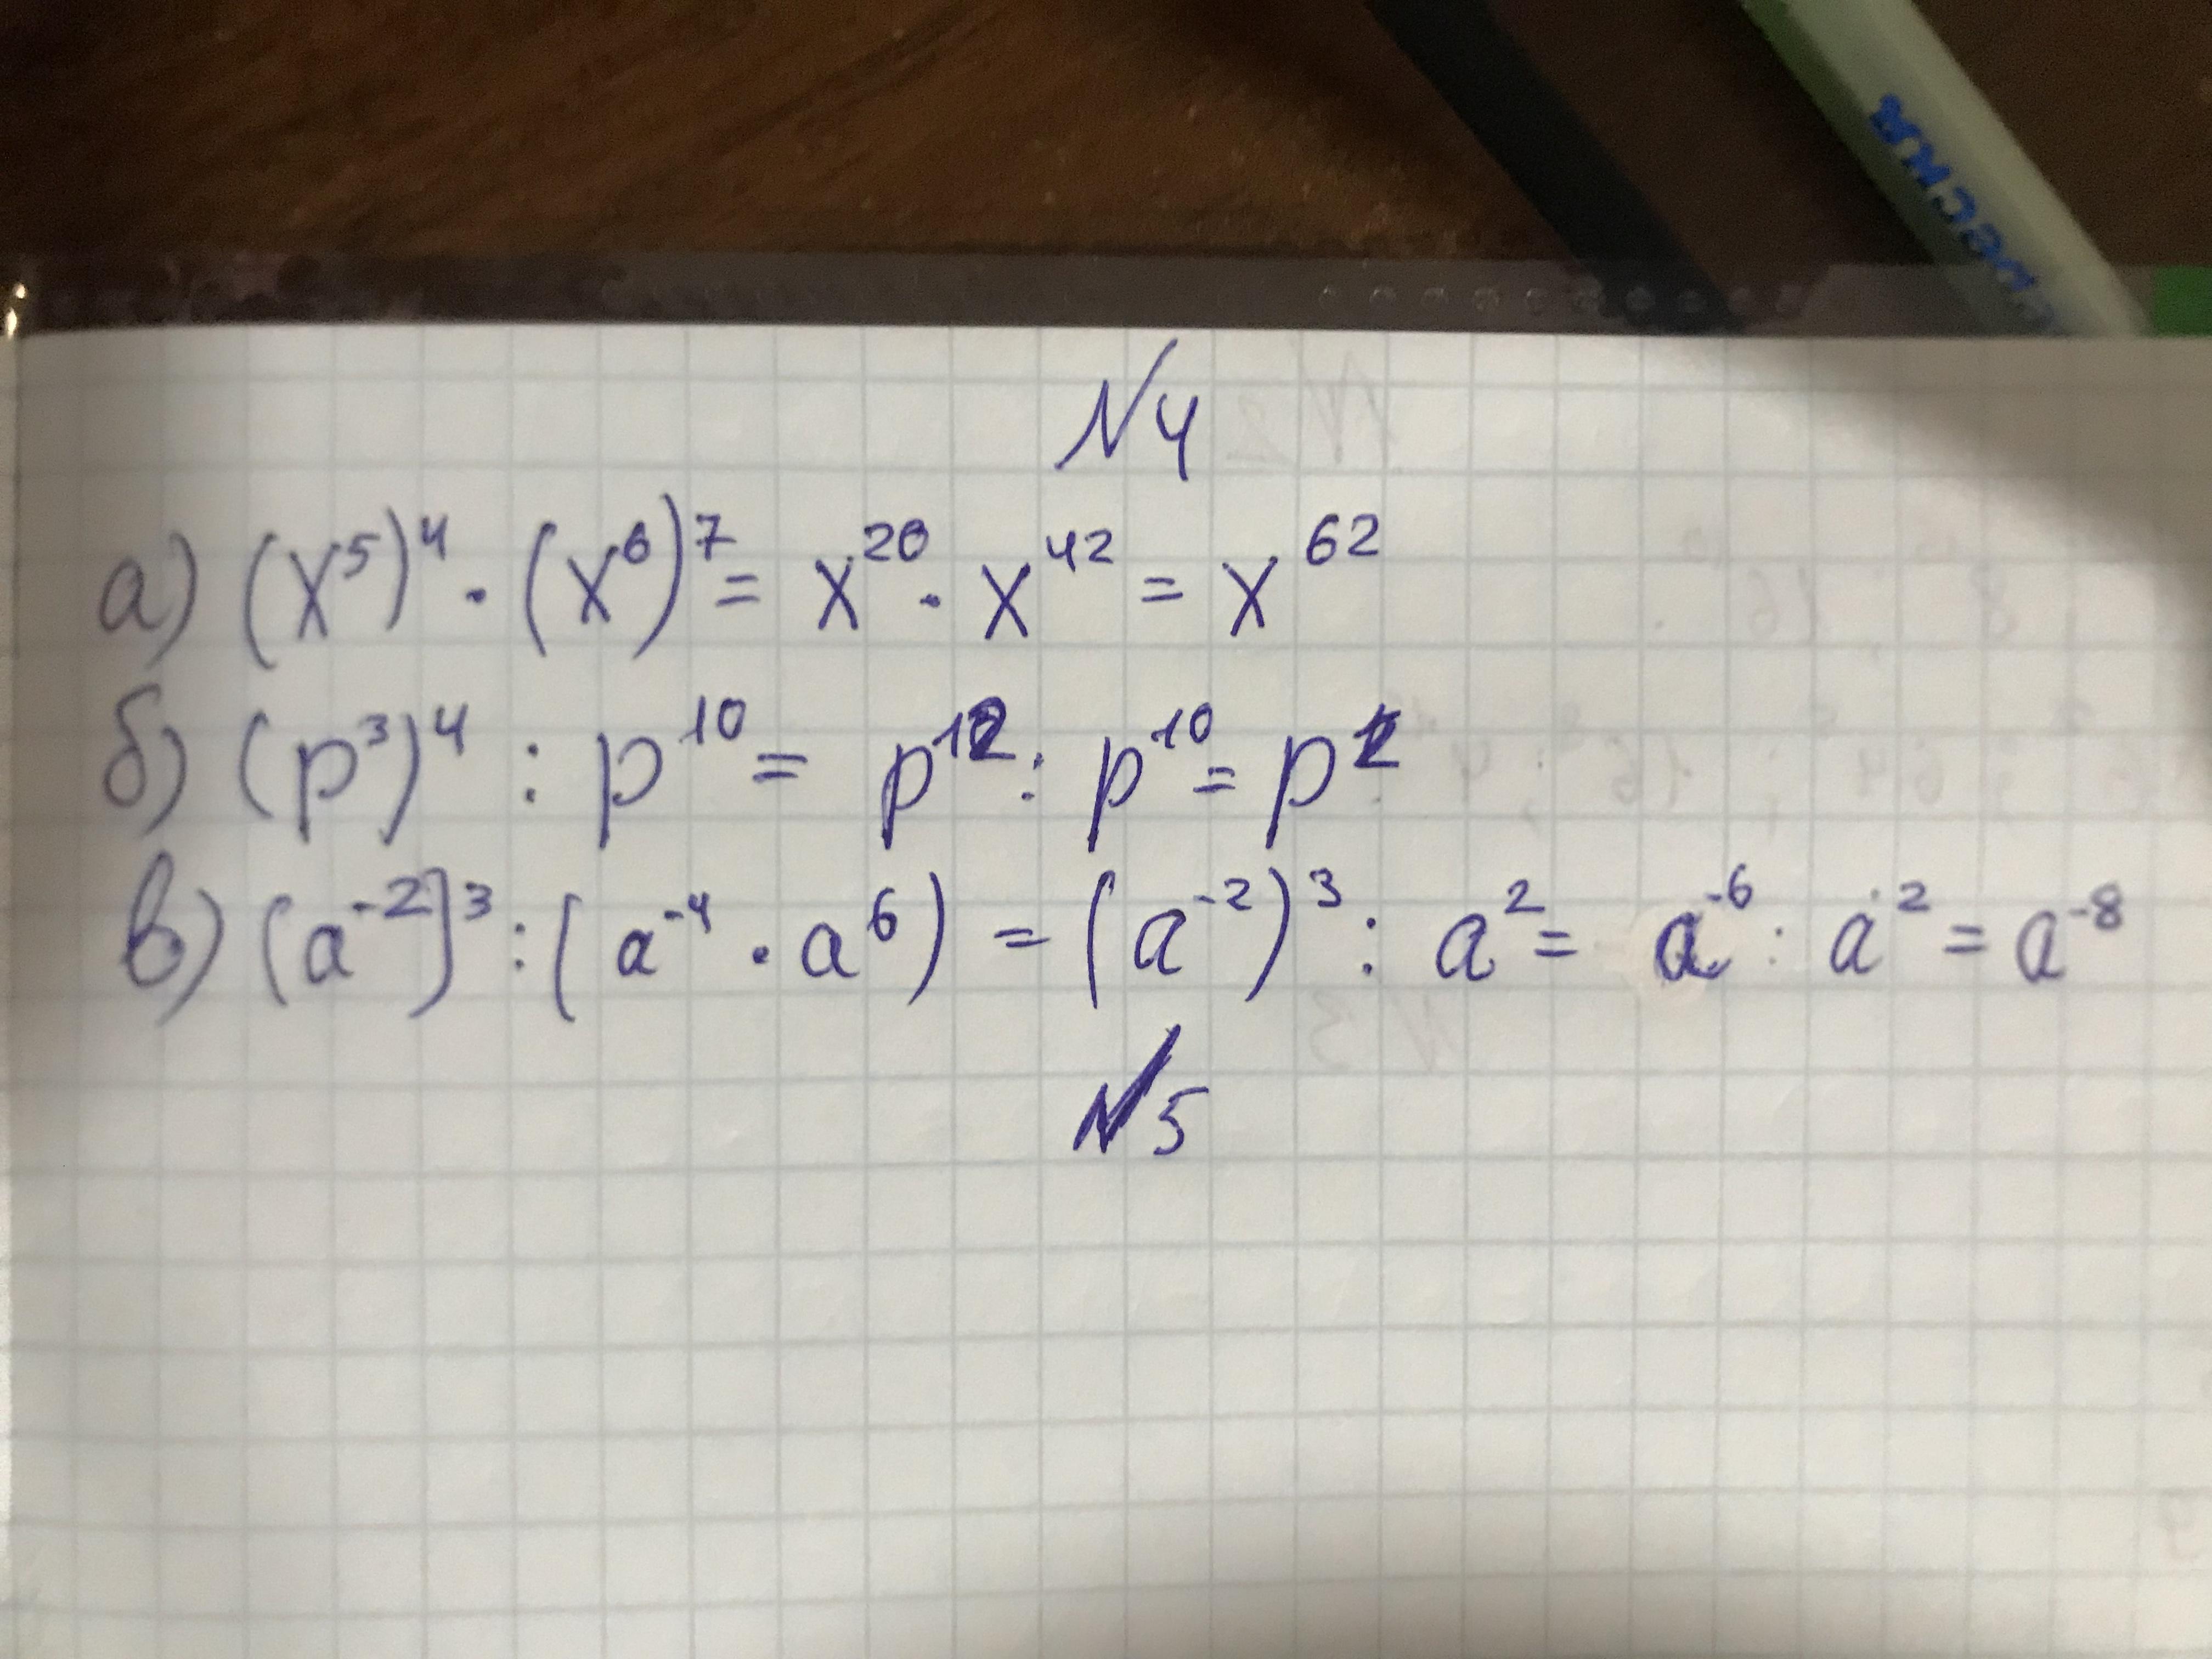 №4
а) (x⁵)⁴ · (x⁶)⁷ = x²⁰ · x⁴² = x⁶²
б) (p³)⁴ : p¹⁰ = p¹² : p¹⁰ = p²
в) (a⁻²)³ : (a⁻⁴ · a⁶) = (a⁻²)³ : a² = a⁻⁶ : a² = a⁻⁸
№5